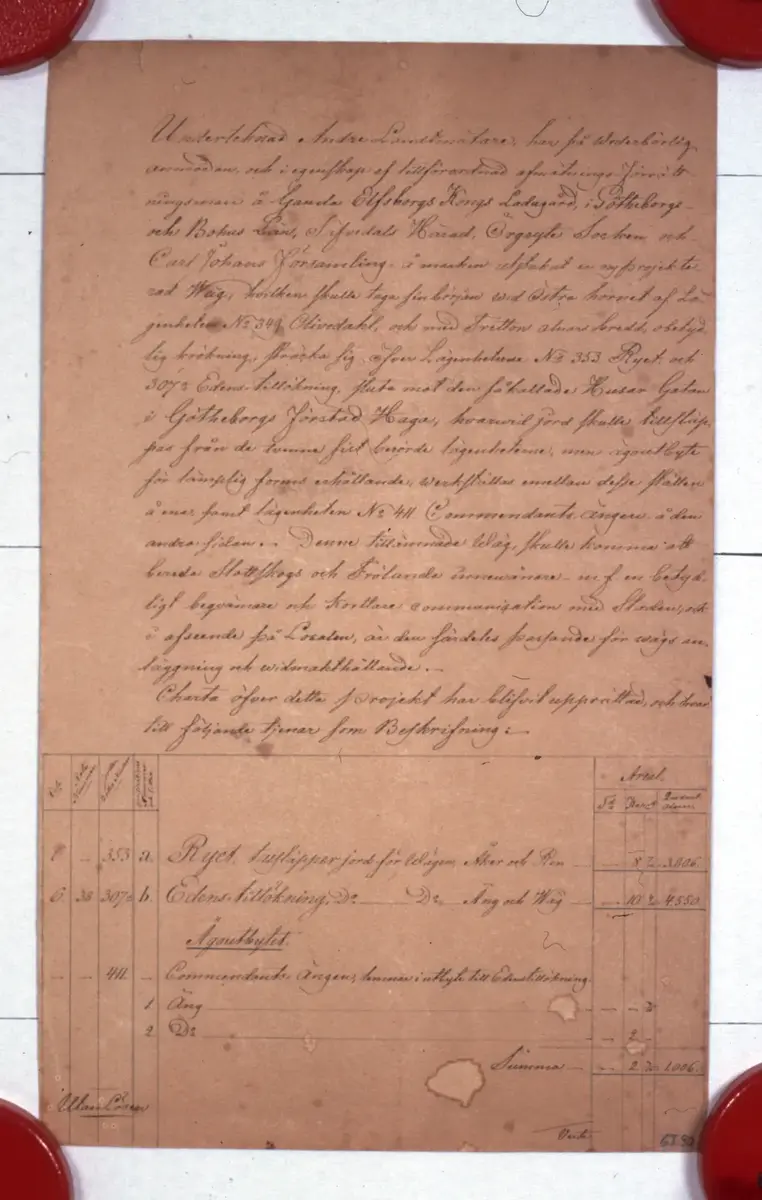 Undertecknad Andre Landtmätare, har på wederbörlig
anmodan, och i egenskap af tillförordnad afmätnings Förrätt-
ningsman å Gamla Elfsborgs Kongs Ladugård, i Götheborgs-
och Bohus Län, Sefvedals Härad, Örgryte Socken och
Carl Johans Församling å marken utstakat en ny projekte-
rad Wäg, hvilken skulle taga sin början wid Östra hörnet af Lä-
genheten No 349 Olivedahl, och med Tretton alnars bredd, obetyd-
lig krökning, sträcka sig öfver Lägenheterne No 353 Ryet och
307½ Edens tillökning, sluta mot den så kallade Husar Gatan
i Götheborgs Förstad Haga, hvarwid jord skulle tillsläp-
pas från de tvenne sist berörde lägenheterne, men ägoutbyte
för lämplig forms erhållande, werkställas emellan desse ställen
å ena, samt lägenheten No 411 Commendants Ängen å den
andra sidan. Denne tillämnade Wäg, skulle komma att
bereda Slottskogs och Frölunda innewånare m.fl en betyd-
ligt beqvämare och kortare communication med Staden, och
i afseende på Localen, är den särdeles passande för wägs an-
läggning och widmakthållande.
Charta öfver detta projekt har blifvit upprättad, och hvar-
till följande tjenar som Beskrifning:
Areal.
353 a. Ryet, tillsläpper jord för Wägen, Åker och Ren 3.806.
6. 38 307½ b. Edens tillökning, Do Do Äng och Wäg 10 4.550.
Ägoutbytet.
411. Commendants Ängen, lemnar i utbyte till Edens tillökning.
1 Äng
2 Do 2
Summa 2 1.006.
Utan Lösen
Vert.